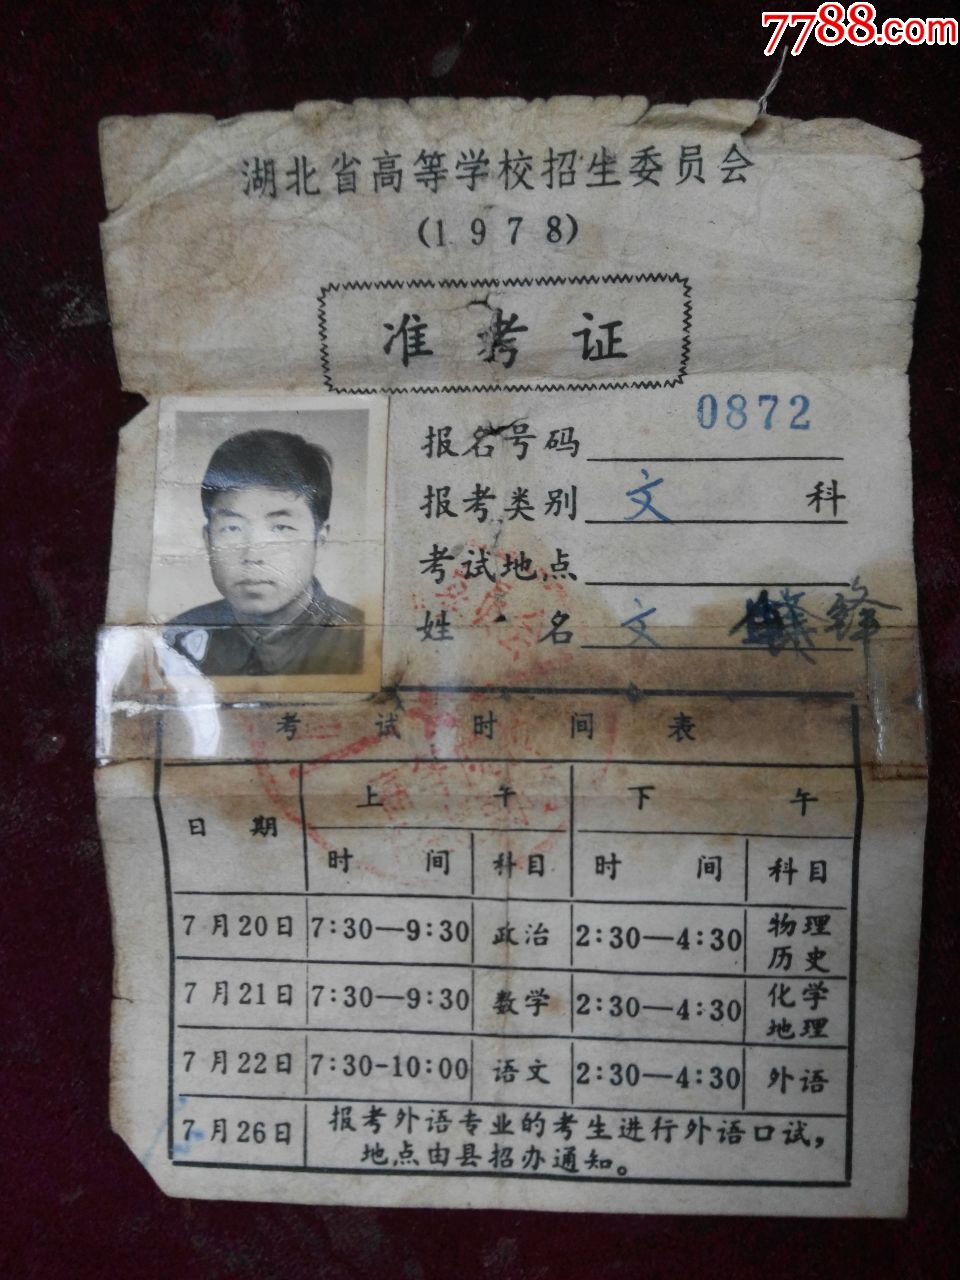 7788.com
湖北省高等学校招生委员会
(1978)
准考证
报名号码 0872
报考类别 文 科
考试地点
姓名 文 锋
考试时间表
日期 上午 下午
时间 科目 时间 科目
7月20日 7:30—9:30 政治 2:30—4:30 物理 历史
7月21日 7:30—9:30 数学 2:30—4:30 化学 地理
7月22日 7:30-10:00 语文 2:30—4:30 外语
7月26日 报考外语专业的考生进行外语口试,
地点由县招办通知。